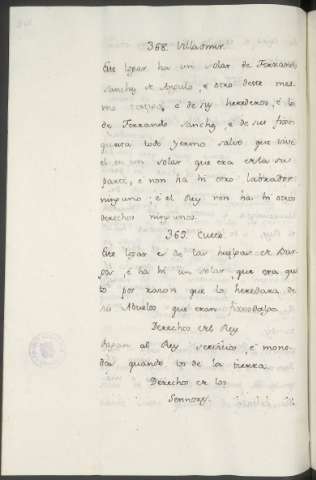 368. Villasmir.
Este logar ha un solar de Ferrando
Sanchez de Angulo, e otro deste mes
mo e de sus herederos, é lo
de Ferrando Sanchez, e de sus
todo yermo salvo que vive
él en un solar que era en la su
parte, e non ha hi otro labrador
ninguno: é el Rey non ha hi otros
derechos ningunos.
369. Cueto.
Este logar es de las huelgas de Bur
gos, é ha hi un solar, que era qui
to por razon que lo heredara de
su Abuelos que eran fixosdalgo.
Derechos del Rey
Pagan al Rey servicios, e mone
das quando los de la tierra.
Derechos de los
Sennores